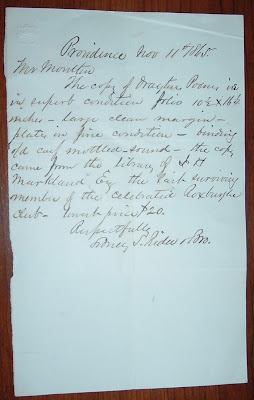 Providence Nov 11th 1865.
Mr Moulton
The copy of Drayton Poems is
in superb condition folio 10½ x 16½
inches - large clean margin -
plates in fine condition - binding
old calf mottled - sound - the copy
came from the library of J H
Markland Esq the last surviving
member of the celebrated Roxburghe
Club - lowest price $20.
Respectfully
Sidney S. Rider & Bro.